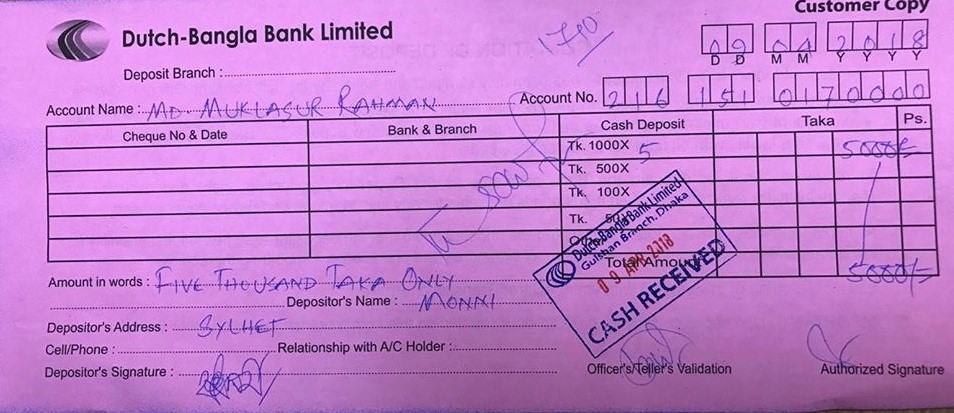 Customer Copy
Dutch-Bangla Bank Limited
1740
09 04 2018
D D M M Y Y Y Y
Deposit Branch :
Account Name : MD. MUKLASUR RAHMAN Account No. 216 151 0170000
Cheque No & Date Bank & Branch Cash Deposit Taka Ps.
Tk. 1000X 5 5000/-
Tk. 500X
Tk. 100X
Tk. 50
Total Amount 5000/-
Dutch-Bangla Bank Limited
Gulshan Branch, Dhaka
09 APR 2018
CASH RECEIVED
Amount in words : FIVE THOUSAND TAKA ONLY
Depositor's Name : MONNI
Depositor's Address : SYLHET
Cell/Phone : Relationship with A/C Holder :
Depositor's Signature :
Officer's/Teller's Validation Authorized Signature